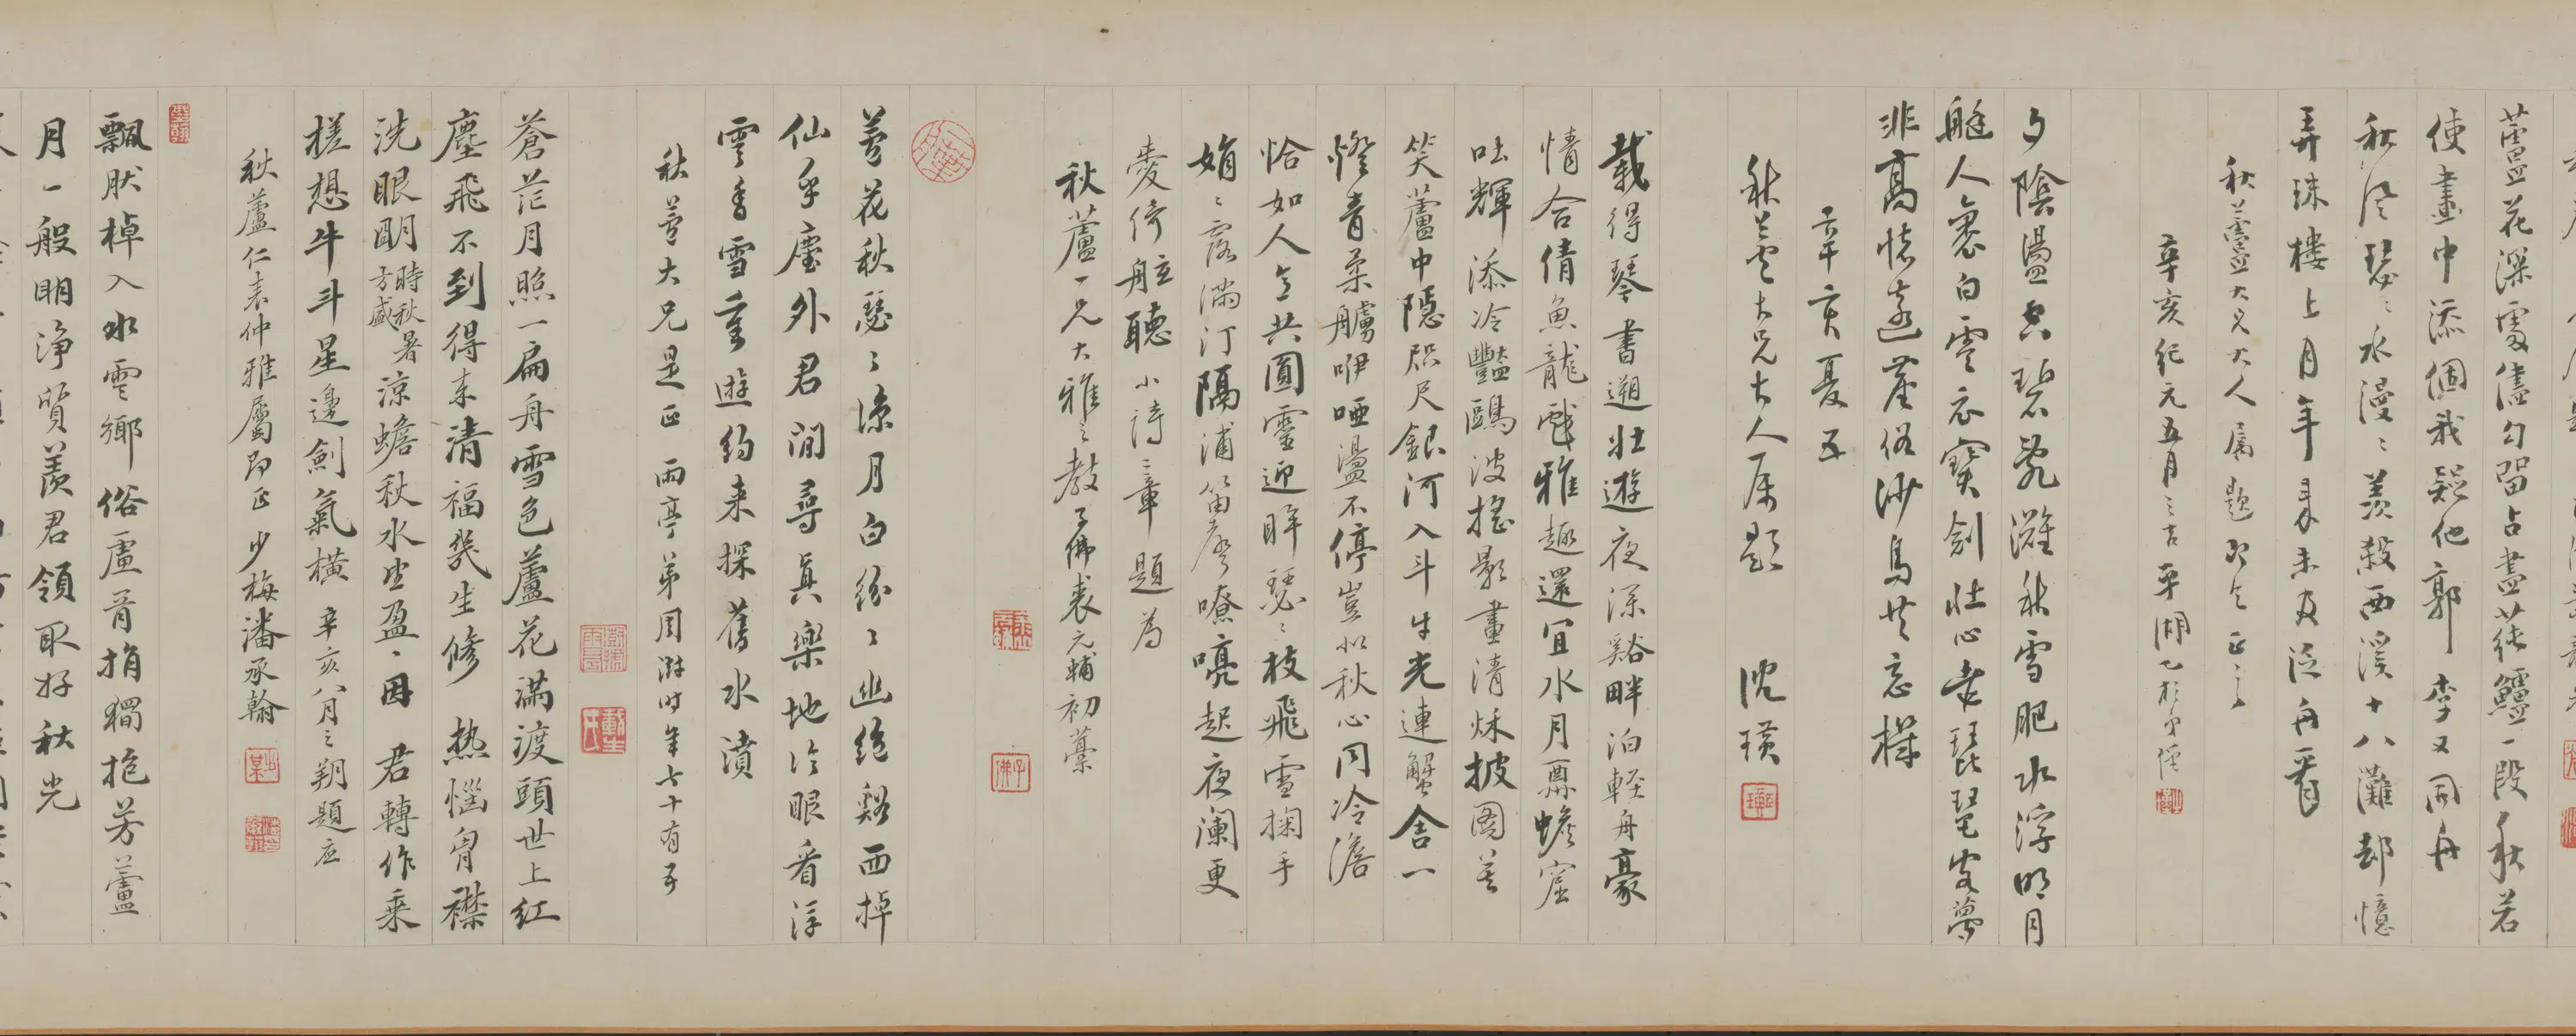 蘆花深處儘勾留占盡蒓鱸一段秋若
使畫中添個我疑他郭李又同舟
秋風瑟瑟水漫漫羨殺西溪十八灘却憶
弄珠樓上月年來未及泛舟看
秋蘆大兄大人屬題即乞正之
辛亥紀元五月之吉平湖
夕陰盪空碧亂灘秋雪肥水浮明月
艇人裹白雲衣寶劍壯心在琵琶客夢
非高懷遠塵俗沙鳥共忘機
辛亥夏五
秋蘆大兄大人屬題 沈璜
載得琴書遡壯遊夜深谿畔泊輕舟豪
情合倩魚龍戲雅趣還宜水月蟾窟
吐輝添冷豔鷗波搖影畫清秌披圖
笑蘆中隱咫尺銀河入斗牛光連蟹舍一
燈青柔艣咿啞盪不停豈似秋心同冷澹
恰如人意共圓靈迎眸瑟瑟枝飛雪掬手
娟娟露滿汀隔浦笛聲嘹喨起夜闌更
愛倚舷聽小詩二章題為
秋蘆一兄大雅之教 子佛袁元輔初藁
蘆花秋瑟瑟涼月白紛紛幽絕谿西棹
仙乎塵外君閒尋真樂地冷眼看浮
雲香雪重遊約來探舊水濆
秋蘆大兄是正 雨亭弟周澍時年七十有
蒼茫月照一扁舟雪色蘆花滿渡頭世上紅
塵飛不到得來清福幾生修 熱惱胷襟
洗眼明時秋暑方盛涼蟾秋水坐盈盈因 君轉作乘
槎想牛斗星邊劍氣橫 辛亥八月之朔題應
秋蘆仁表仲雅屬即正 少梅潘承翰
飄然棹入水雲鄉俗慮胥捐獨抱芳蘆
月一般明淨質羨君領取好秋光